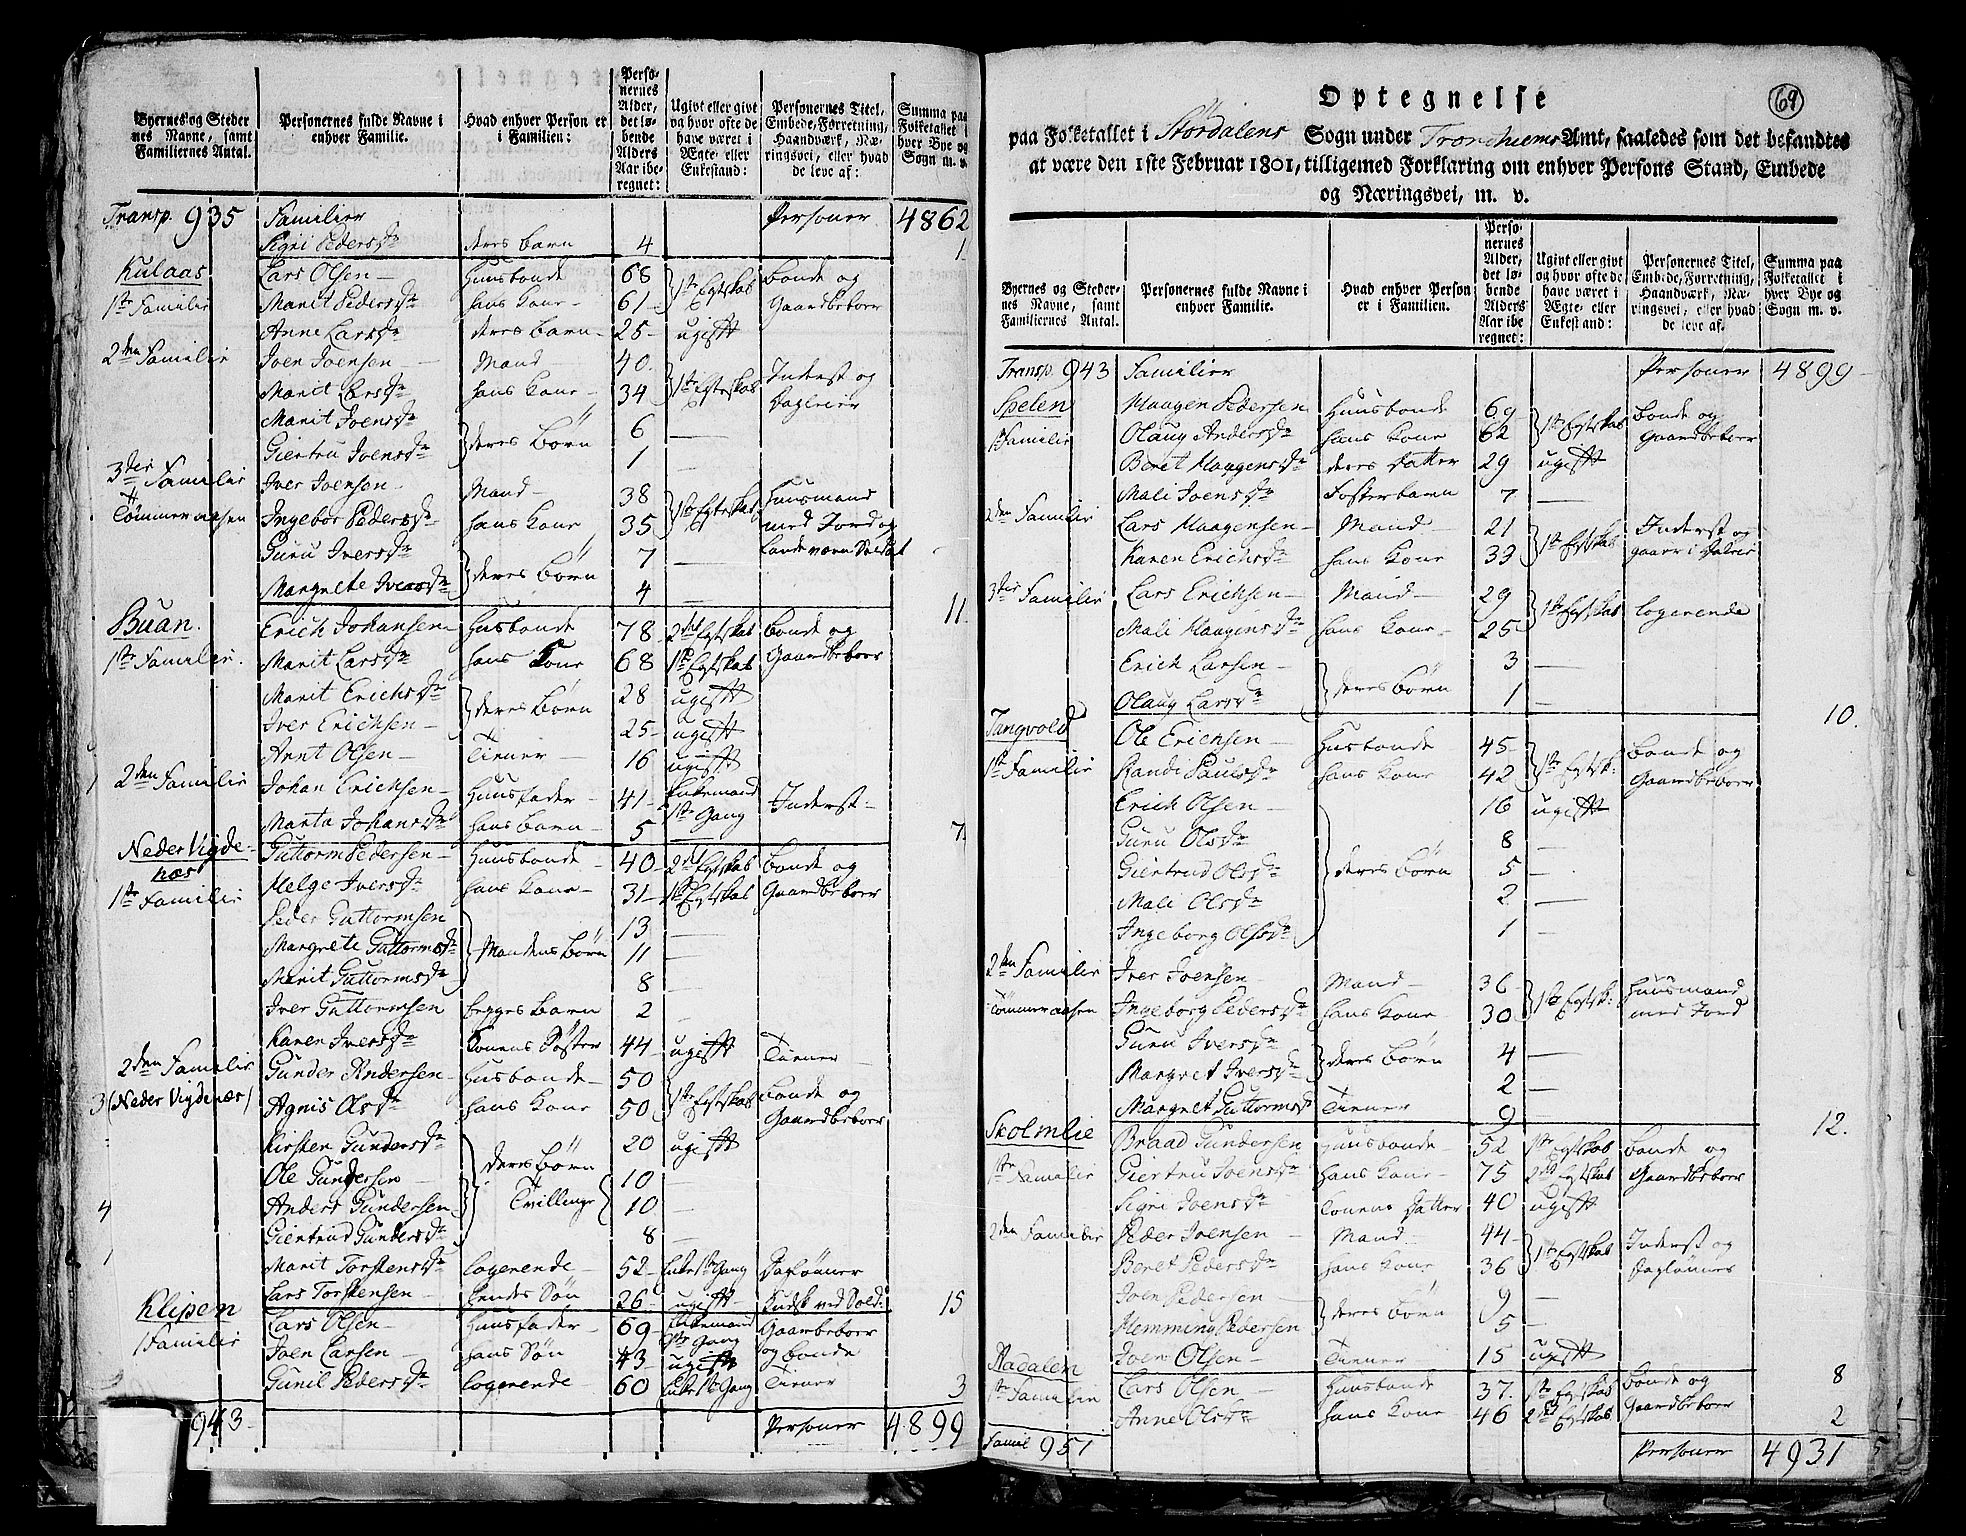 Byernes og Steder nes Navne, samt Familiernes Antal. | Personernes fulde Navne i enhver Familie. | Hvad enhver Person er i Familien: | Perso- nernes Alder, det lø- bende Alders Aar ibe- regnet: | Ugivt eller givt og hvor ofte de have været i Ægte- eller Enkestand: | Personernes Titel, Embede, Forretning, Haandværk, Næ- ringsvei, eller hvad de leve af: | Summa paa Folketallet i hver Bye og Sogn m. v.
Transp. 935 Familier Personer 4862
Sigri Pedersdr deres barn 4 1
Kulaas Lars Olsen Huusbonde 68 1te Egteskab bonde og
1te Familie Marit Pedersdr hans kone 61 Gaardbeboer
Anne Larsdr deres barn 25 ugift
2den Familie Joen Joensen Mand 40 1te Egteskab Inderst og
Marit Larsdr hans kone 34
Marit Joensdr deres børn 6
Giertru Joensdr 1
3die Familie Iver Joensen Mand 38 1te Egteskab Huusmand
Tømmeraasen Ingebor Pedersdr hans kone 35 med Jord og
Guru Iversdr deres børn 7 Landeværn Soldat
Margrete Iversdr 4 11
Buan. Erich Johansen Husbonde 78 2det Egteskab bonde og
1te Familie. Marit Larsdr hans kone 68 1te Egteskab Gaardbeboer
Marit Erichsdr deres børn 28 ugift
Iver Erichsen 25 ugift
Arnt Olsen Tiener 16 ugift
2den Familie Johan Erichsen Huusfader 41 Enkemand 1te Gang Inderst
Marta Johansdr hans barn 5 7
Neder Vigdenæs Guttorm Pedersen Huusbonde 40 2det Egteskab bonde og
1te Familie Helge Iversdr hans kone 31 1te Egteskab Gaardbeboer
Peder Guttormsen Mandens børn 13
Margrete Guttormsdr 11
Marit Guttormsdr 8
Iver Guttormsen begges barn 2
Karen Iversdr konens Søster 44 ugift Tiener
2den Familie Gunder Andersen Husbonde 50 1te Egteskab bonde og
3 (Neder Vigdenæs) Agnis Olsdr hans kone 50 Gaardbeboer
Kirsten Gundersdr deres børn 20 ugift
Ole Gundersen Tvillinge 10
4 Anders Gundersen 10
Giertrud Gundersdr 8
1 Marit Torstensdr logerende 52 Enke 1te Gang
Lars Torstensen hendes Søn 26 ugift Kudsk ved Sold: 15
Klipen Lars Olsen Huusfader 69 Enkemand 1te Gang Gaarbeboer
1 Familie Joen Larsen hans Søn 43 ugift og bonde
Gunil Pedersdr logerende 60 Enke 1te Gang Tiener 3
943. Personer 4899
69
Optegnelse
paa Folketallet i Stordalens Sogn under Trondhiems Amt, saaledes som det befandtes
at være den 1ste Februar 1801, tilligemed Forklaring om enhver Persons Stand, Embede
og Næringsvei, m. v.
Byernes og Steder- nes Navne, samt Familiernes Antal. | Personernes fulde Navne i enhver Familie. | Hvad enhver Person er i Familien. | Perso- nernes Alder, det lø- bende Alders Aar ibe- regnet: | Ugivt eller givt og hvor ofte de have været i Ægte- eller Enkestand: | Personernes Titel, Embede, Forretning, Haandværk, Næ- ringsvei, eller hvad de leve af. | Summa paa Folketallet i hver Bye og Sogn m. v.
Transp. 943 Familier Personer 4899
Spelen Haagen Pedersen Huusbonde 69 1te Egteskab bonde og
1te Familie Olaug Andersdr hans kone 62 Gaardbeboer
Beret Haagensdr deres datter 29 ugift
Mali Joensdr Fosterbarn 7
2den Familie Lars Haagensen Mand 21 1te Egteskab Inderst og
Karen Erichsdr hans kone 33
3die Familie Lars Erichsen Mand 29 1te Egteskab logerende
Mali Haagensdr hans kone 25
Erich Larsen deres børn 3
Olaug Larsdr 1 10.
Tangvold Ole Erichsen Husbonde 45 1te Egtsk: bonde og
1te Familie Randi Paulsdr hans kone 42 Gaardbeboer
Erich Olsen deres børn 16 ugift
Guru Olsdr 8
Giertrud Olsdr 5
Mali Olsdr 2
Ingeborg Olsdr 1
2den Familie Iver Joensen Mand 36 1te Egtsk: Huusmand
Tømmeraasen Ingeborg Pedersdr hans kone 30 med Jord
Guru Iversdr deres børn 4
Margret Iversdr 2
Margret Guttormsdr Tiener 9 12.
Skolmlie Braad Gundersen Huusbonde 52 1te Egtskab bonde og
1te Familie Giertru Joensdr hans kone 75 2det Egtskab Gaardbeboer
Sigri Joensdr konens datter 40 ugift
2den Familie Peder Joensen Mand 44 1te Egtskab Inderst og
Beret Pedersdr hans kone 36 daglønner
Joen Pedersen deres børn 9
Hemming Pedersen 5
Joen Olsen Tiener 15 ugift 8
Aadalen Lars Olsen Huusbonde 37. 1te Egteskab bonde og
1te Familie Anne Olsdr hans kone 46 2det Egtskab Gaardbeboer 2
Famil 951 Personer 4931